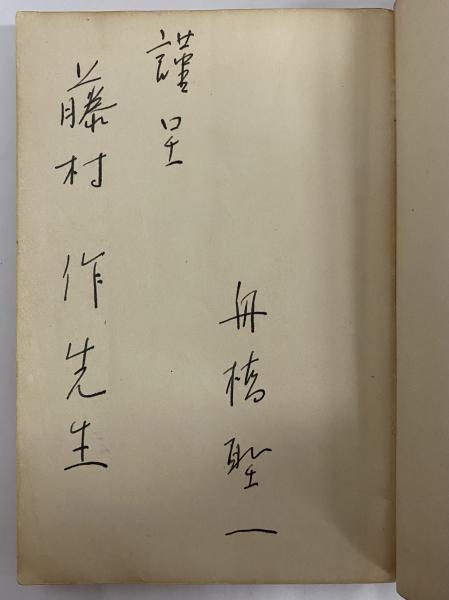 舟橋聖一
謹呈
藤村 作先生